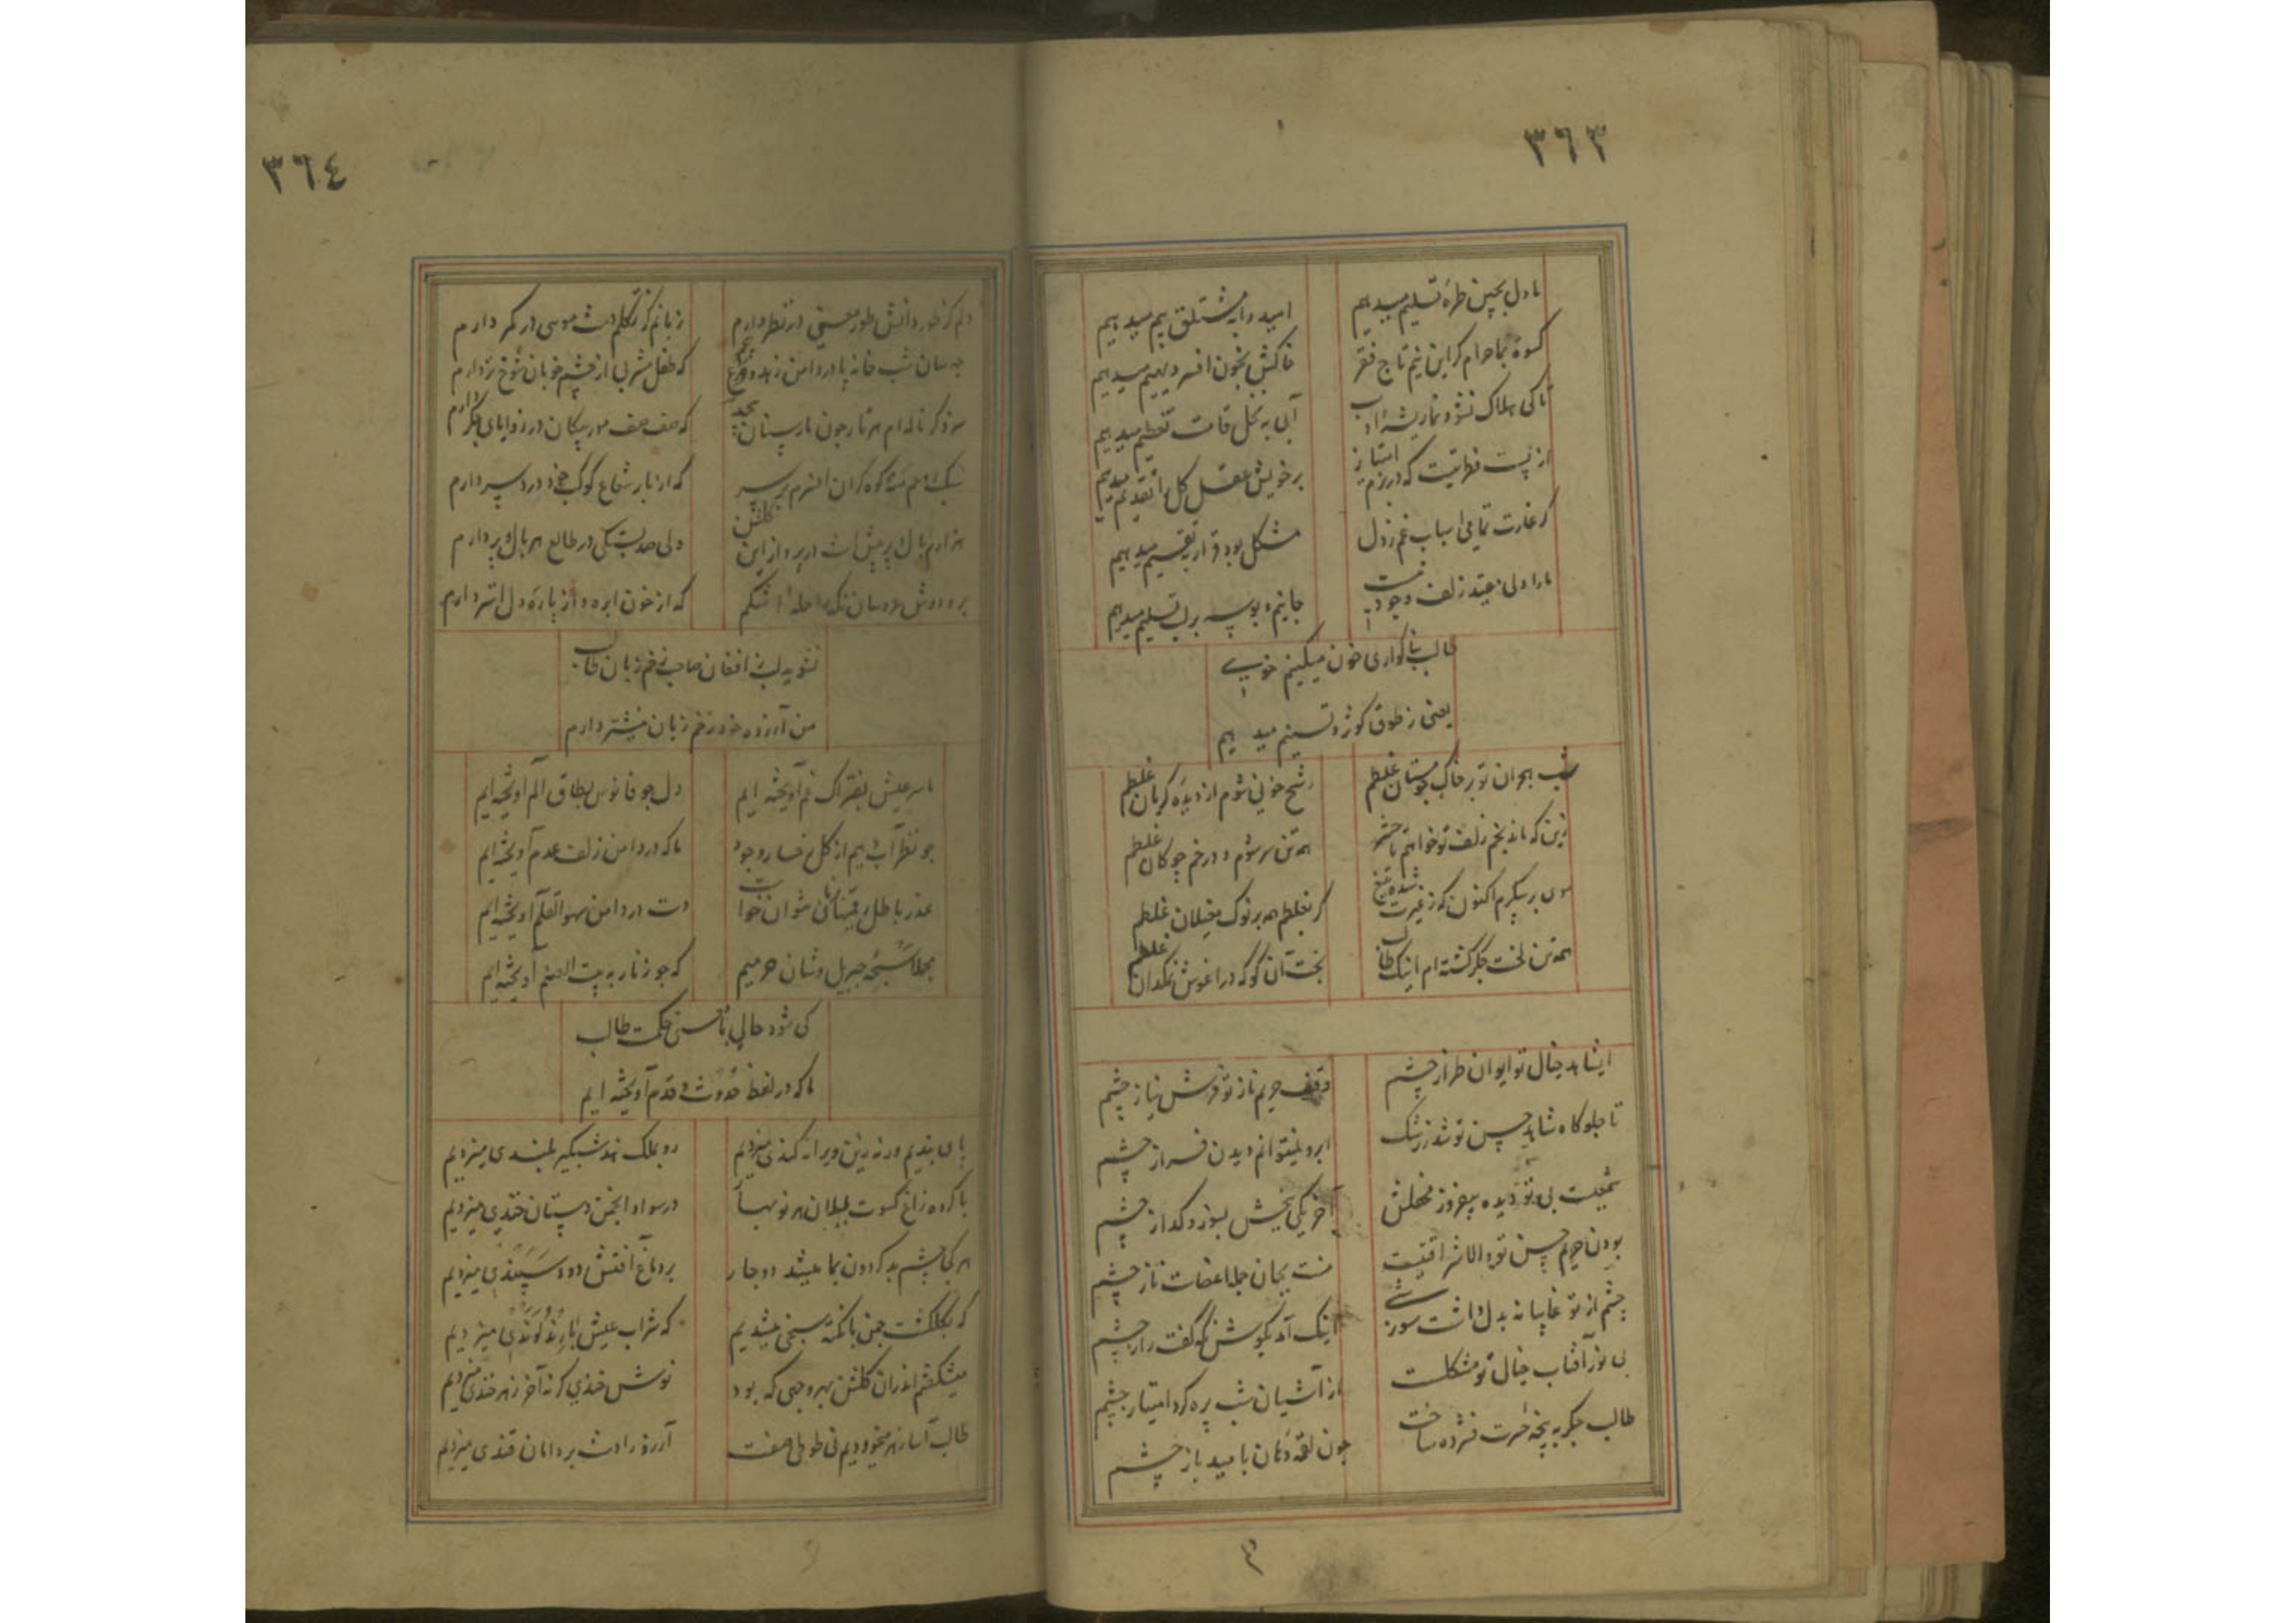 ٣٦٣
ما دل بچین طره تسلیم میدهیم
امید را به میدهیم
کسوة بما حرام کزین نیم تاج فقر
خاکش بخون افسر دیهیم میدهیم
تا کی هلاک نشو و نما ریشه ادب
آبی به کل قامت تعظیم میدهیم
از پست فطرتیست که در بزم امتیاز
بر خویش عقل کل را تقدیم میدهیم
کر غارت تمامی اسباب غم ز دل
مشکل بود قرار بتقسیم میدهیم
ما را دلی بقید زلف وجود نیست
جانیم و بوسه بر لب تسلیم میدهیم
طالب بنا کواری خون میکنیم خوی
یعنی ز طوق کوثر و تسنیم میدهیم
شب هجران تو بر خاک چو مستان غلطم
رشح خونی شوم از دیده کریان غلطم
زین که ماند بخم زلف تو خواهم تا حشر
همه تن سر شوم و در خم چوکان غلطم
موی بر پیکرم اکنون که ز غیرت شده تیغ
کر بغلطم همه بر نوک مغیلان غلطم
همه تن لخت جکر کشته ام اینک طالب
بخت آن کو که در اغوش نمکدان غلطم
ای شاهد خیال تو ایوان طراز چشم
وقف حریم ناز تو فرش نیاز چشم
تا جلوه کاه شاهد حسن تو شد ز رشک
ابرو نمیتوانم دیدن فراز چشم
شمعیست بی تو دیده بیفروز محفلش
آخر یکی ببخش بسوز و کداز چشم
بودن حریم حسن تو والا شرافتیست
منت بجان جمله اعضاست ناز چشم
چشم از تو غایبانه بدل داشت سورشی
اینک آمد بکوش نکه کفت راز چشم
بی نور آفتاب خیال تو مشکلست
از آشیان شب پره کرد امتیاز چشم
طالب جکر به پنجه حسرت فشرده ساخت
چون لقمه دهان بامید باز چشم
٣٦٤
دلم کز نور دانش طور معنی در نظر دارم
زبانم کز تکلم دست موسی در کمر دارم
چه سان شب خانه پا در دامن زهد و ورع پیچم
که طفل مشربی از چشم خوبان شوخ تر دارم
که صف صف مور پیکان در زوایای جکر دارم
که از بار شعاع کوکب خود درد سر دارم
هزارم بال و پر پیش است در پرواز این کلشن
ولی صد بستکی در طالع هر بال و پر دارم
بر و دوش عروسان نکه را حله از اشکم
که از خون ابره و از پاره دل استر دارم
نشوید لب ز افغان صاحب زخم زبان طالب
من آزرده خود زخم زبان نیشتر دارم
ما سر عیش بفتراک غم آویخته ایم
دل چو فانوس بطاق الم آویخته ایم
چو نظر آب دهیم از کل رخسار وجود
ما که در دامن زلف عدم آویخته ایم
عذر باطل رقمیهای نتوان خواست
دست در دامن سهو القلم آویخته ایم
بجمله سبحه جبریل وشان حرمیم
که چو زنار به بیت الصنم آویخته ایم
کی شود حالی ما سخن حکمت طالب
ما که در لفظ حدوث و قدم آویخته ایم
پای بندیم ور نه زین ویرانه کندی میزدیم
رو بملک هند شبکیر بلندی میزدیم
با کروه زاغ کسوت بلبلان هر نوبهار
در سواد انجمن دستان خندی میزدیم
هر کجا چشم بد کردون بما میشد دوچار
بر دماغ آتش دود سپندی میزدیم
که بکلکشت چمن با نکته سنجی میشدیم
که شراب عیش با رند لوندی میزدیم
میشکفتم اندران کلشن بهر وجهی که بود
نوش خندی کر نه آخر زهرخندی میزدیم
طالب آسا زهر میخوردیم نی طوطی صفت
آرزو را دست بر دامان قندی میزدیم